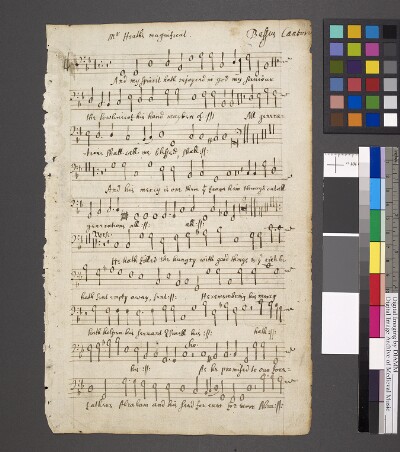 Mr Heaths magnificat.
Bassus Cantoris
And my spirit hath rejoyced in god my saviour
the lowliness of his hand mayden of :||: All genera=
=tions shall call me blessed, shall :||:
And his mercy is on them yt feare him through out all
generations all :||: all :||:
He hath filled the hungry with good things & ye rich he
hath sent empty away, sent :||: He remembring his mercy
hath holpen his servant Israell his :||: hath :||:
cho:
his :||: As he promised to our fore=
fathers Abraham and his seed for ever for ever Abra :||:
Digital Imaging by DIAMM
Digital Image Archive of Medieval Music